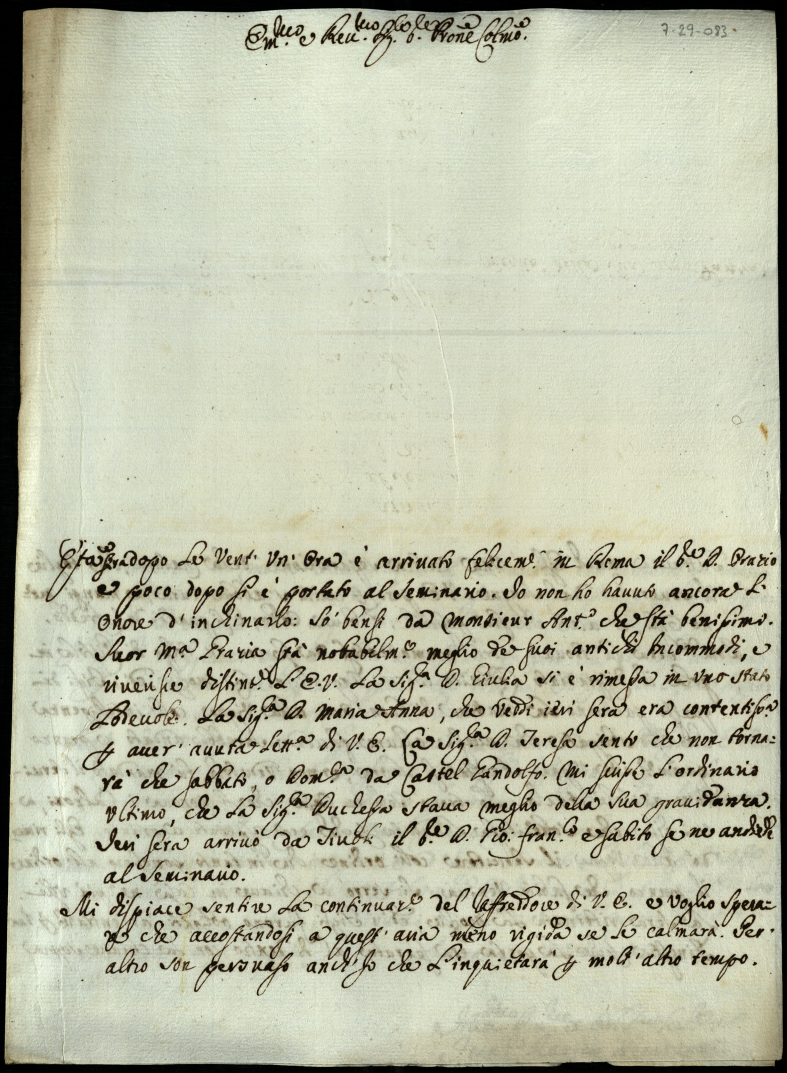 7-29-083
Em.mo e Rev.mo Sig.r Prone Colmo.
dopo le vent' un' ora è arrivato felicem.e in Roma il S.e D. Orazio
e poco dopo si è portato al Seminario. Io non ho havuto ancora l'
Onore d' inchinarlo: Sò bensi da Monsieur Ant.o che stà benissimo.
Suor M.a Grazia stà notabilm.e meglio de suoi antichi Incommodi, e
riverisce distint.e l' E.V. La Sig.ra D. Giulia si è rimessa in uno stato
Lodevole. La Sig.ra D. Maria Anna, che veddi ieri sera era contentiss.a
p aver' avuta lett.a di V.E. La Sig.ra D. Teresa sento che non torna=
rà che sabbato, o Dom.ca da Castel Gandolfo. Mi scrisse l'ordinario
ultimo, che la Sig.ra Duchessa stava meglio della sua gravidanza.
Ieri sera arrivò da Tivoli il S.e D. Gio: Fran.co e subito se ne andiede
al Seminario.
Mi dispiace sentire la continuaz.e del raffreddore di V.E. e voglio spera=
re che accostandosi a quest' aria meno rigida se le calmarà. Per'
altro son persuaso anch' Io che l'inquietarà p molt' altro tempo.